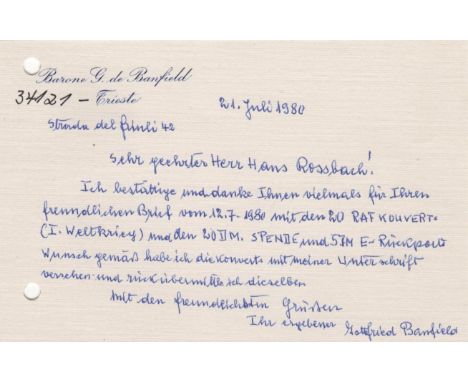 Barone G. de Banfield
34121 - Trieste
21. Juli 1980
Strada del Friuli 42
Sehr geehrter Herr Hans Rossbach!
Ich bestätige und danke Ihnen vielmals für Ihren
freundlichen Brief vom 12.7.1980 mit den 20 RAF KOUVERTS
(I. Weltkrieg) und den 20 DM. SPENDE und 5 DM E-Rückporto
Wunsch gemäß habe ich die Kouverts mit meiner Unterschrift
versehen und rückübermittle ich dieselben
Mit den freundlichsten Grüssen
Ihr ergebener Gottfried Banfield